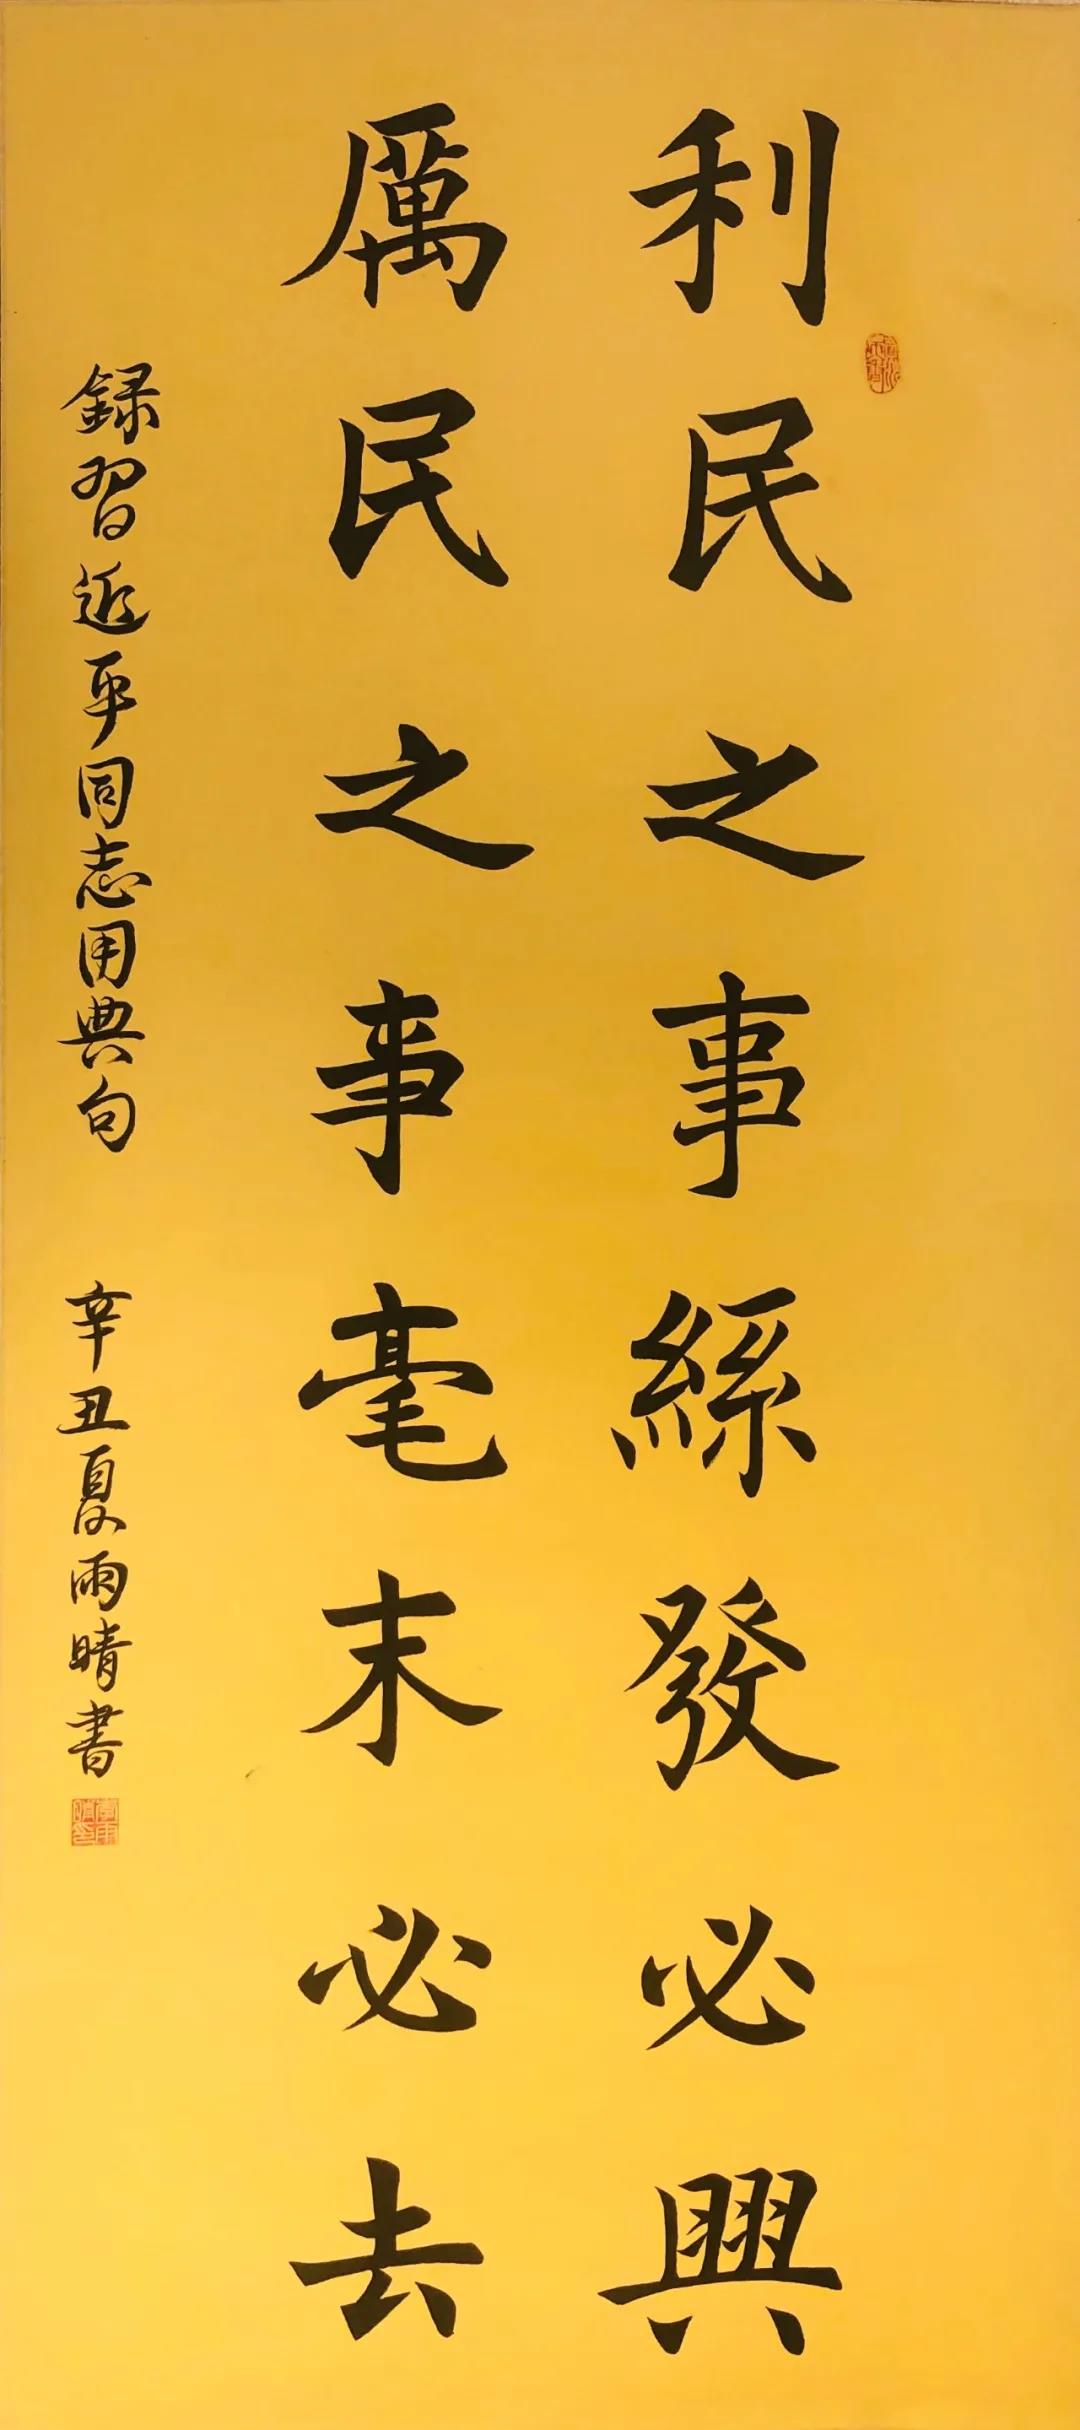 利民之事絲發必興
厲民之事毫末必去
録習近平同志用典句
辛丑夏雨晴書